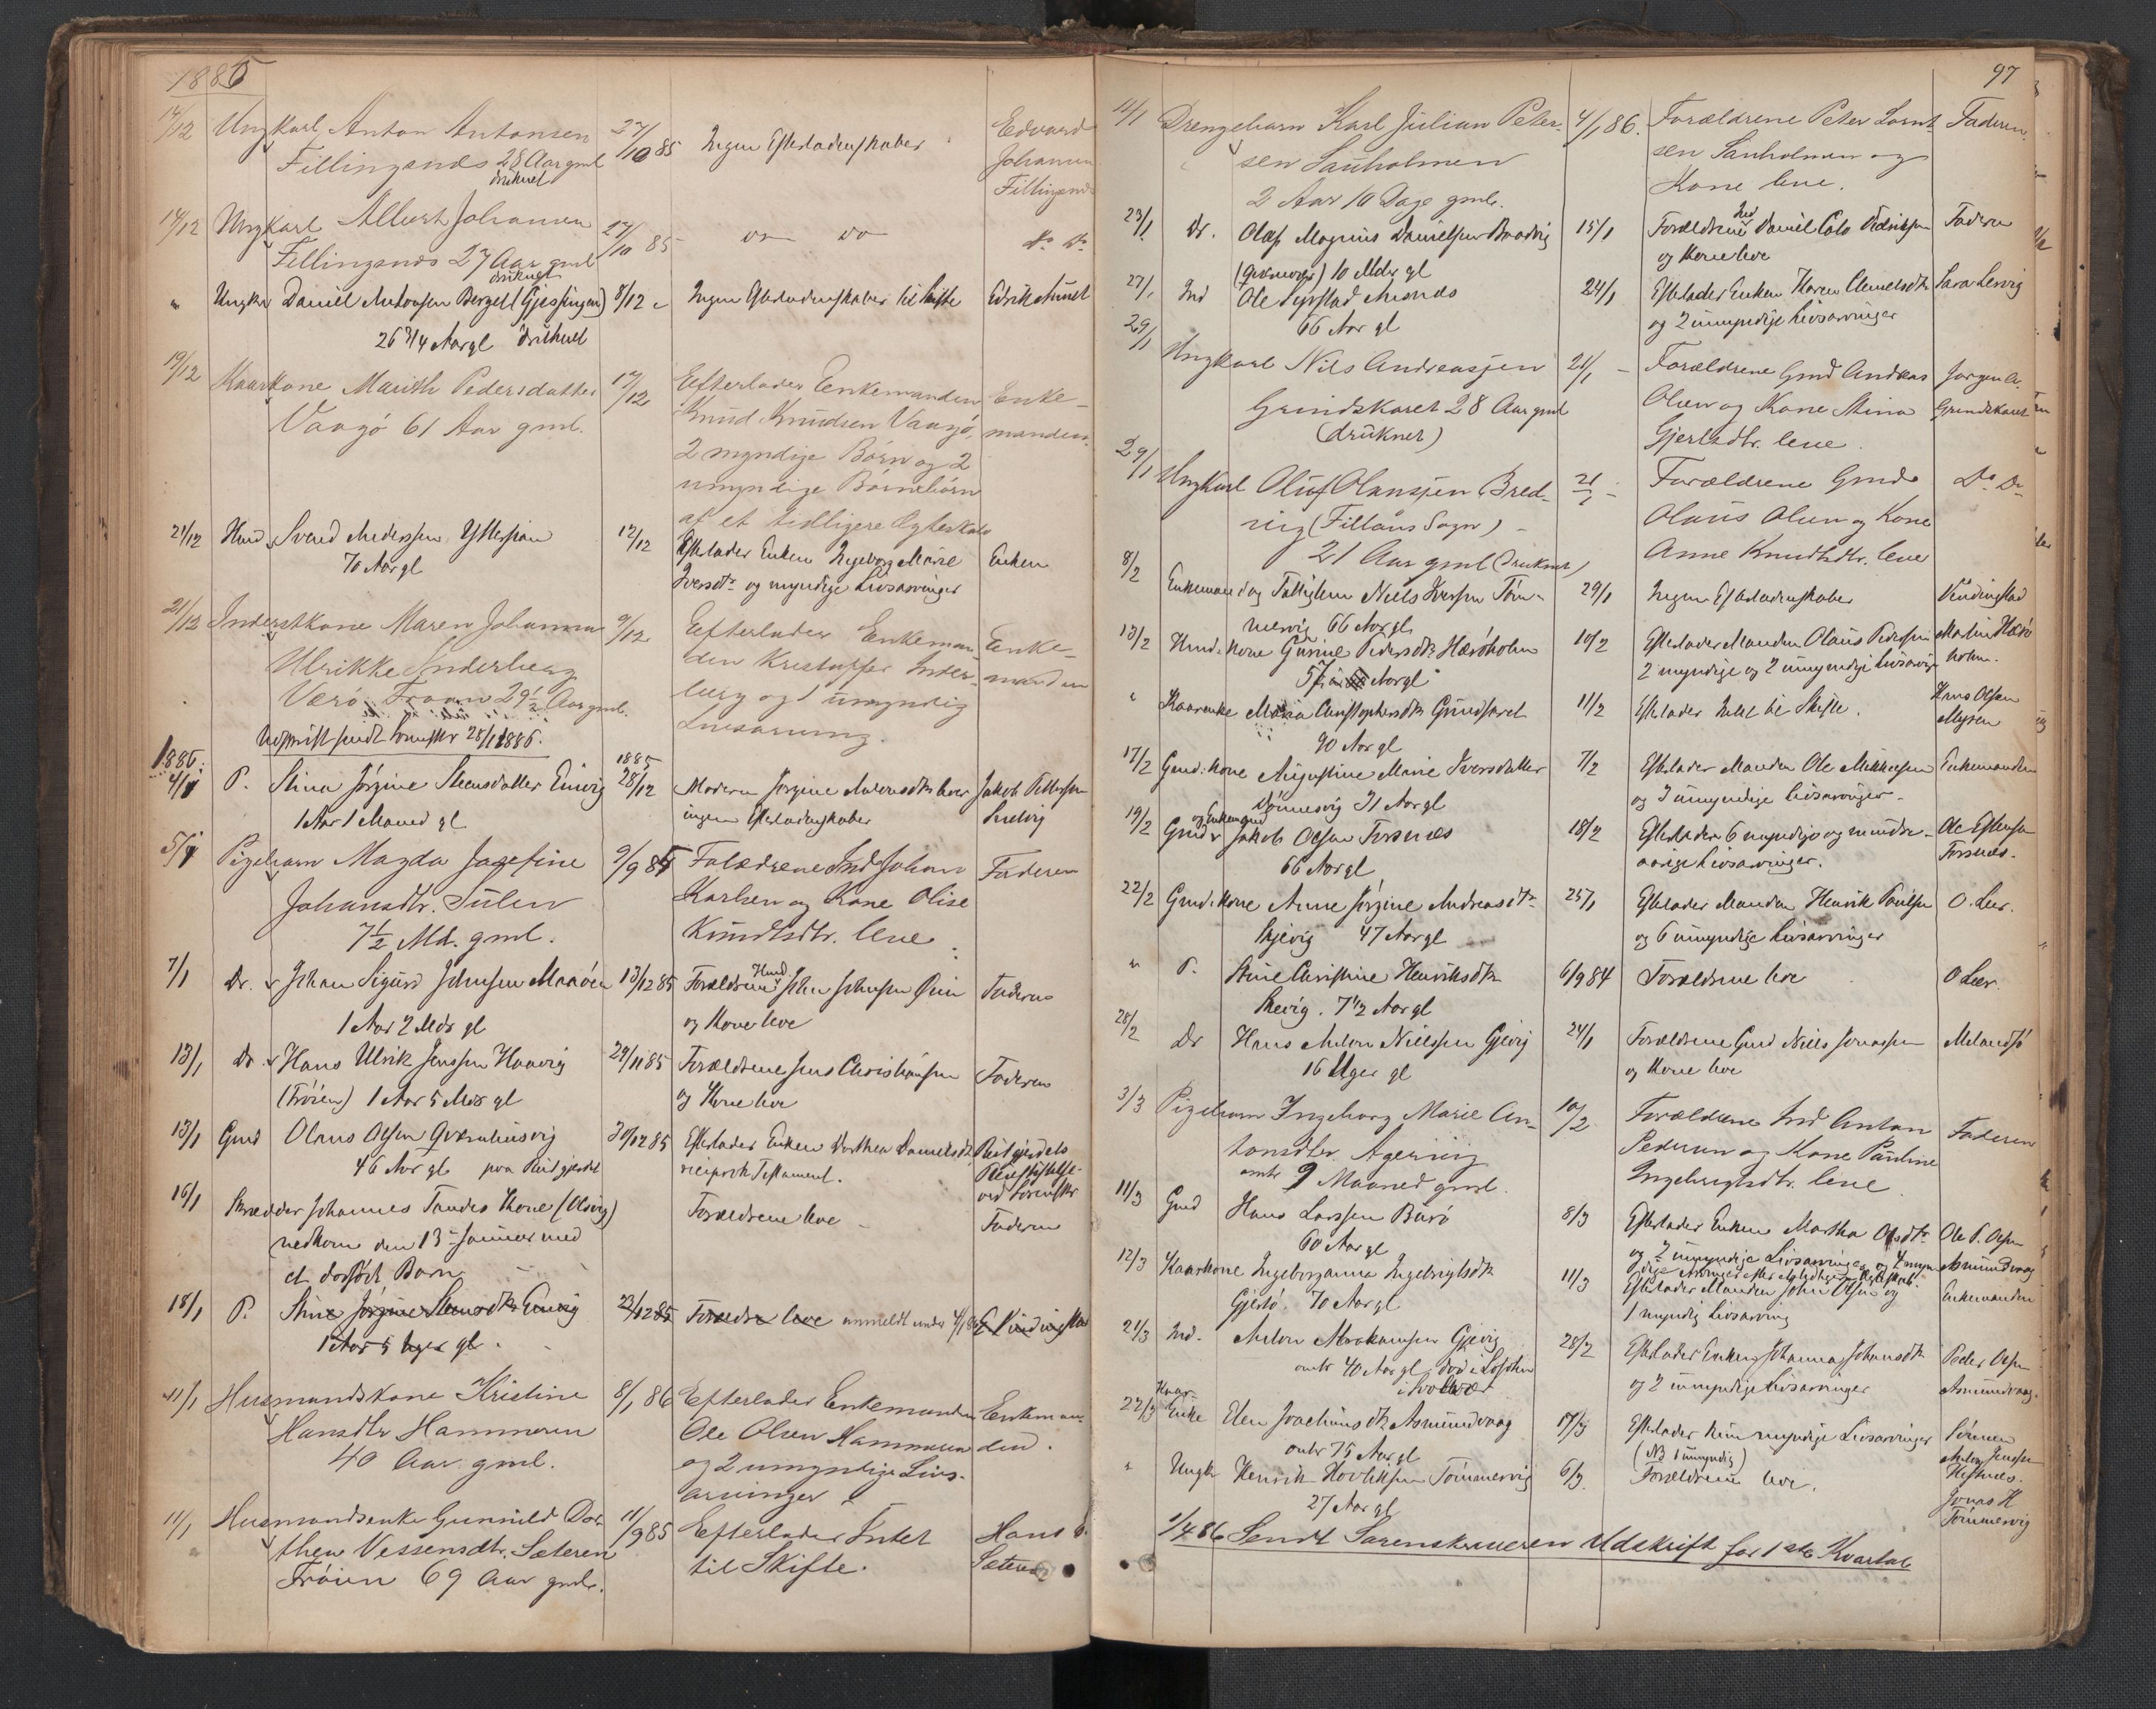 1885
14/12 Ungkarl Anton Antonsen 27/10 85 Ingen Efterladenskaber Edvard
Fillingsnæs 28 Aar gml Johansen
druknet Fillingsnæs
14/12 Ungkarl Albert Johansen 27/10 85 do do Do Do
Fillingsnæs 27 Aar gml
druknet
" Ungka Daniel Antonsen Berget (Gjessingen) 8/12 Ingen Efterladenskaber til Skifte
26 3/4 Aar gl druknet
19/12 Kaarkone Marith Pedersdatter 17/12 Efterlader Enkemanden Enke-
Vaagø 61 Aar gml. Knud Knudsen Vaagø, manden
2 myndige Børn og 2
umyndige Børnebørn
af et tidligere Ægteskab
21/12 Husmd Svend Anderssen Ytterøian 12/12 Efterlader Enken Ingeborg Marie Enken
70 Aar gl Iversdtr og myndige Livsarvinger
21/12 Inderstkone Maren Johanna 9/12 Efterlader Enkeman- Enke-
Ulrikke Inderberg den Kristoffer Inder- manden
Værø Froøn 29 1/2 Aar gml. berg og 1 umyndig
Livsarving.
Udskrift sendt Sorenskr 28/1 1886.
1886. 1885
4/1 P. Stina Jørgine Steensdatter Envig 28/12 Moderen Jørgine Andersdtr lever Jakob Pettersen
1 Aar 1 Maaned gl ingen Efterladenskaber
5/1 Pigebarn Magda Josefine 9/9 85 Forældrene Ind Johan Faderen
Johansdtr. Sulen Karlsen og Kone Olise
7 1/2 Md. gml. Knudtsdtr. leve
7/1 Dr. Johan Sigurd Johnsen Maaøen 13/12 85 Forældrene Husmd John Johnsen Øien Faderen
1 Aar 2 Mdr gl og Kone leve
13/1 Dr. Hans Ulrik Jenssen Haavig 29/11 85 Forældrene Jens Christiansen Faderen
(Frøien) 1 Aar 5 Mdr gl og Kone leve
13/1 Gmd Olaus Olsen Qværnhusvig 30/12 85 Efterlader Enken Dorthea Danielsdtr Reitgjerdets
46 Aar gl paa Reitgjerdet reciprokt Testament.
ved Sorenskr
16/1 Skrædder Johannes Tandes Kone (Olsvig) Forældrene leve Faderen
nedkom den 13de Januar med
et dødfødt Barn
18/1 P. Stine Jørgine Steensdtr Envig 23/12 85 Forældre leve anmeldt under 4/1 86
1 Aar 5 Uger gl.
11/1 Husmandskone Kristine 8/1 86 Efterlader Enkemanden Enkeman-
Hansdtr Hammeren Ole Olsen Hammeren den.
40 Aar gml. og 2 umyndige Livs-
arvinger
11/1 Husmandsenke Gunnild Dor- 11/9 85 Efterlader Intet Hans
thea Vessensdtr. Sæteren til Skifte. Sæteren
Frøien 69 Aar gml.
97
11/1 Drengebarn Karl Julian Peter- 4/1 86. Forældrene Peter Lornt- Faderen.
sen Sauholmen sen Sauholmen og
2 Aar 10 Dage gml. Kone leve.
23/1 Dr. Olaf Magnus Danielsen Bradvig 15/1 Forældrene Ind Daniel Edrissen Faderen
10 Mdr gl og Kone leve
27/1 Ind Ole Syrstad Asnæs 24/1 Efterlader Enken Karen Clemetsdtr Lara Lervig
66 Aar gl og 2 umyndige Livsarvinger
29/1 Ungkarl Nils Andreassen 21/1 Forældrene Gmd Andreas Jørgen A.
Grindskaret 28 Aar gml Olsen og Kone Stina Grindskaret
(druknet) Gjertsdtr. leve.
29/1 Ungkarl Oluf Olaussen Bred- 21/1 Forældrene Gmd Do Do
vig (Fillans Sogn) Olaus Olsen og Kone
21 Aar gml (druknet) Anne Knudtsdtr. leve
8/2 Enkemand og Fattiglem Niels Iversen Tøm- 29/1 Ingen Efterladenskaber Vindingstad
mervig 66 Aar gl
13/2 Husmd: Kone Gurine Pedersdtr Hærøholm 10/2 Efterlader Manden Olaus Pedersen Martin Hærø-
57 Aar gl 2 myndige og 2 umyndige Livsarvinger holm.
" Kaarenke Maria Christophersdtr Grindskaret 11/2 Efterlader Intet til Skifte. Hans Olsen
90 Aar gl Myren
17/2 Gmd: Kone Augustine Marie Iversdatter 7/2 Efterlader Manden Ole Mikkelsen Enkemanden
Dønnesvig 31 Aar gl og 3 umyndige Livsarvinger.
19/2 Gmd og Enkemand Jakob Olsen Forsnæs 18/2 Efterlader 6 myndige og mindre- Ole Estensen
66 Aar gl aarige Livsarvinger. Forsnæs.
22/2 Gmd: Kone Anne Jørgine Andreasdtr 25/1 Efterlader Manden Henrik Paulsen O. Leer.
Skjevig 47 Aar gl og 6 umyndige Livsarvinger
" P. Stine Christine Henriksdtr 6/9 84 Forældrene leve O Leer.
Skevig. 7 1/2 Aar gl
28/2 Dr Hans Anton Nielssen Gjevig 24/1 Forældrene Gmd Niels Jonassen Melandsø
16 Uger gl og Kone leve
3/3 Pigebarn Ingeborg Marie An- 10/2 Forældrene Ind Anton Faderen
tonsdtr. Agervig Pedersen og Kone Pauline
omtr 9 Maaned gml. Ingebrigtsdtr. leve
11/3 Gmd Hans Larssen Burø 8/3 Efterlader Enken Martha Olsdtr Ole P. Olsen
60 Aar gl og 2 umyndige Livsarvinger og 4 myn- Asmundvaag
dige Arvinger efter
12/3 Kaarkone Ingeborganna Ingebrigtsdtr 11/3 Efterlader Manden John Olsen og Enkemanden
Gjersø. 70 Aar gl 1 myndig Livsarving
21/3 Ind. Anton Abrahamsen Gjevig 28/2 Efterlader Enken Johanna Johansdtr Peder Olsen
omtr 40 Aar gl død i Lofoten og 2 umyndige Livsarvinger Asmundvaag.
i Svolvær
22/3 Kaar-Enke Elen Joachimsdtr Asmundvaag 17/3 Efterlader kun myndige Livsarvinger
omtr 75 Aar gl (NB 1 umyndig) Anton Jensen
" Ungk Henrik Tømmervig 6/3. Forældrene leve.
27 Aar gl Jonas H
Tømmervig
1/4 86 Sendt Sorenskriveren Udskrift for 1ste Kvartal